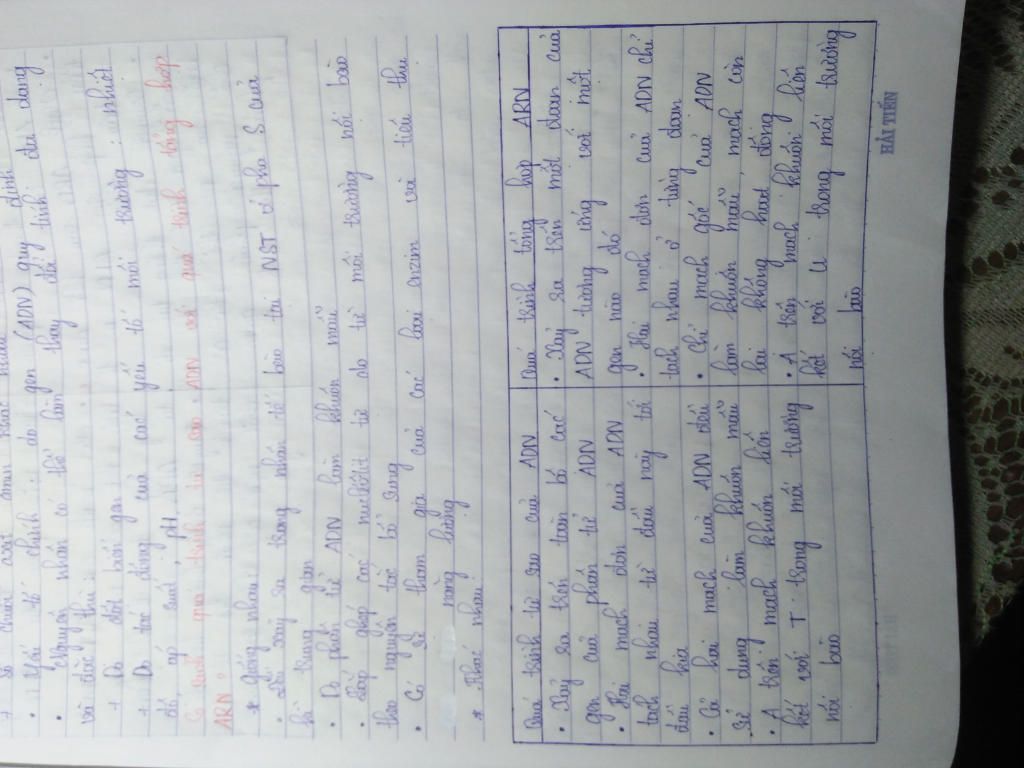 + số chuỗi axit amin khác nhau
• Yếu tố chính: do gen (ADN) quy định
• Nguyên nhân có thể làm thay đổi tính đa dạng
và đặc thù:
+ Do đột biến gen
+ Do tác động của các yếu tố môi trường: nhiệt
độ, áp suất, pH
So sánh quá trình tự sao ADN với quá trình tổng hợp
ARN?
* giống nhau
• Đều xảy ra trong nhân tế bào tại NST ở pha S của
kì trung gian
• Do phân tử ADN làm khuôn mẫu
• Lắp ghép các nuclêôtit tự do từ môi trường nội bào
theo nguyên tắc bổ sung
• Có sự tham gia của các loại enzim và tiêu thụ
năng lượng
* Khác nhau
Quá trình tự sao của ADN
• Xảy ra trên toàn bộ các
gen của phân tử ADN
• Hai mạch đơn của ADN
tách nhau từ đầu này tới
đầu kia
• Cả hai mạch của ADN đều
sử dụng làm khuôn mẫu
• A trên mạch khuôn liên
kết với T trong môi trường
nội bào
Quá trình tổng hợp ARN
• Xảy ra trên một đoạn của
ADN tương ứng với một
gen nào đó
• Hai mạch đơn của ADN chỉ
tách nhau ở từng đoạn
• Chỉ mạch gốc của ADN
làm khuôn mẫu, mạch còn
lại không hoạt động
• A trên mạch khuôn liên
kết với U trong môi trường
nội bào
HẢI TIẾN